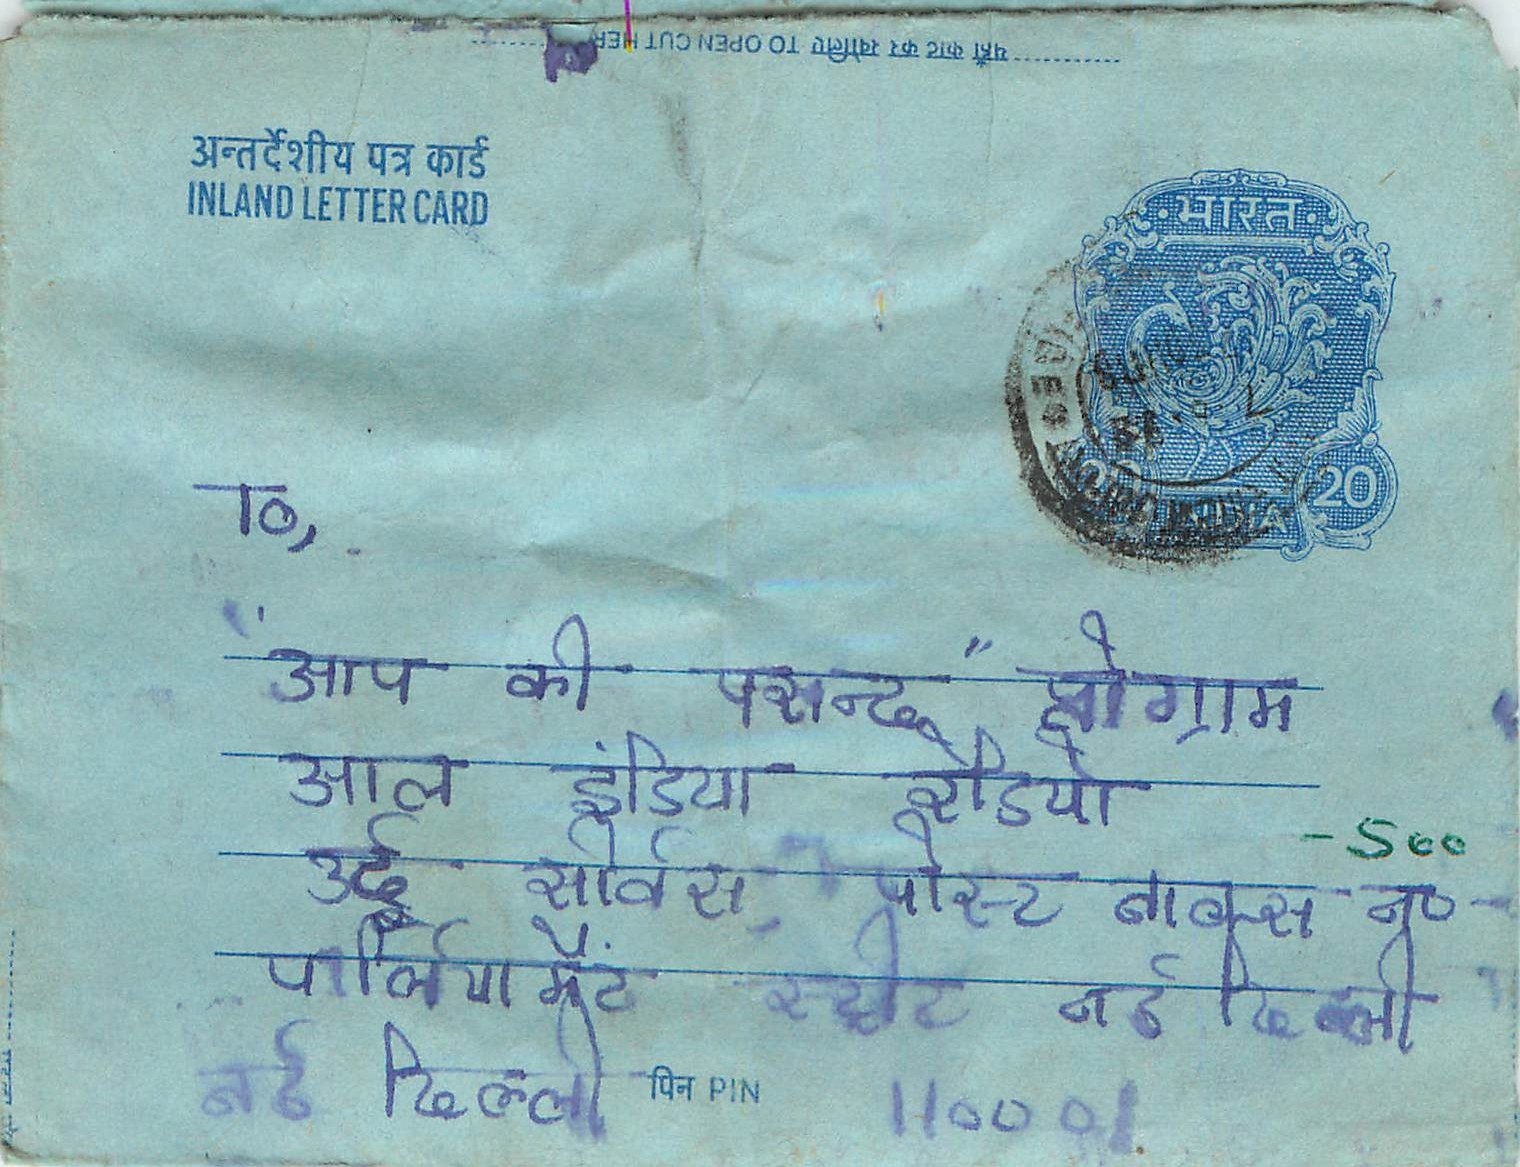 यहाँ काट कर खोलिए TO OPEN CUT HERE
अन्तर्देशीय पत्र कार्ड
INLAND LETTER CARD
भारत
20
INDIA
To,
"आप की पसन्द" प्रोग्राम
आल इंडिया रेडियो
-500
उर्दू सर्विस, पोस्ट बाक्स न०
पार्लियामैंट स्ट्रीट नई दिल्ली
नई दिल्ली पिन PIN 110001